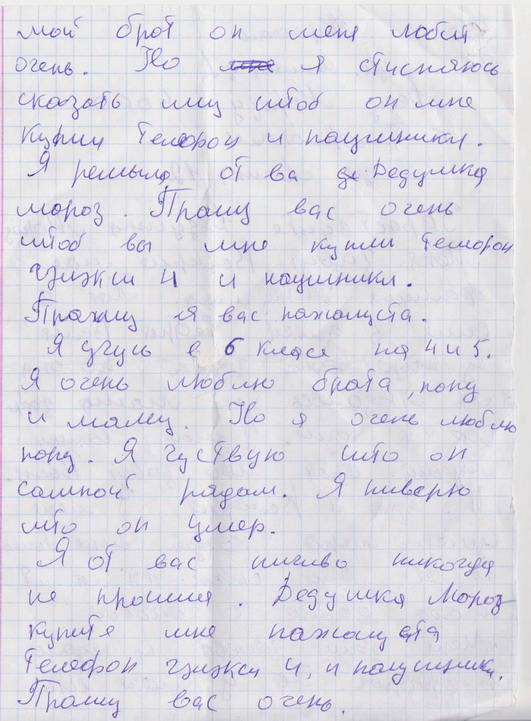 мой брат он меня любит
очень. Но я стисняюсь
сказать иму штоб он мне
купил телефон и наушники.
Я решыла от ва де Дедушка
мороз. Прашу вас очень
штоб вы мне купили телефон
гэлэкси 4 и наушники.
Прашу я вас пажалуста.
Я учусь в 6 класе на 4 и 5.
Я очень люблю брата, папу
и маму. Но я очень люблю
папу. Я чуствую што он
самной рядам. Я ниверю
што он умер.
Я от вас ничиво никогда
не прасила. Дедушка Мороз
купите мне пажалуста
Телефон гэлэкси 4, и наушники.
Прашу вас очень.